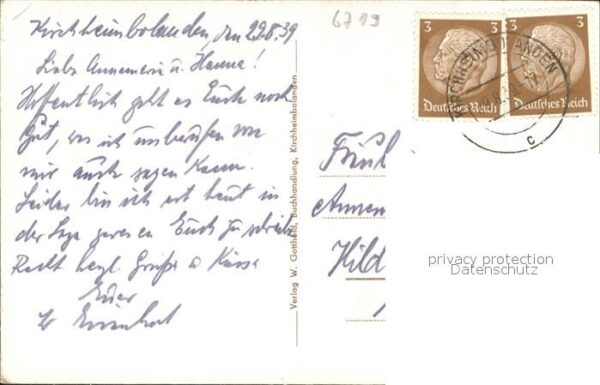 Kirchheimbolanden, den 29.8.39
6719
Liebe Annemarie u. Hanna!
Hoffentlich geht es Euch noch
gut, was ich unberufen von
mir auch sagen kann.
Leider bin ich erst heut in
der Lage gewesen Euch zu schreiben
Recht herzl. Grüße u Küsse
Euer
Verlag W. Gotthold, Buchhandlung, Kirchheimbolanden
3 3
Deutsches Reich Deutsches Reich
KIRCHHEIMBOLANDEN
c
Hild
privacy protection
Datenschutz